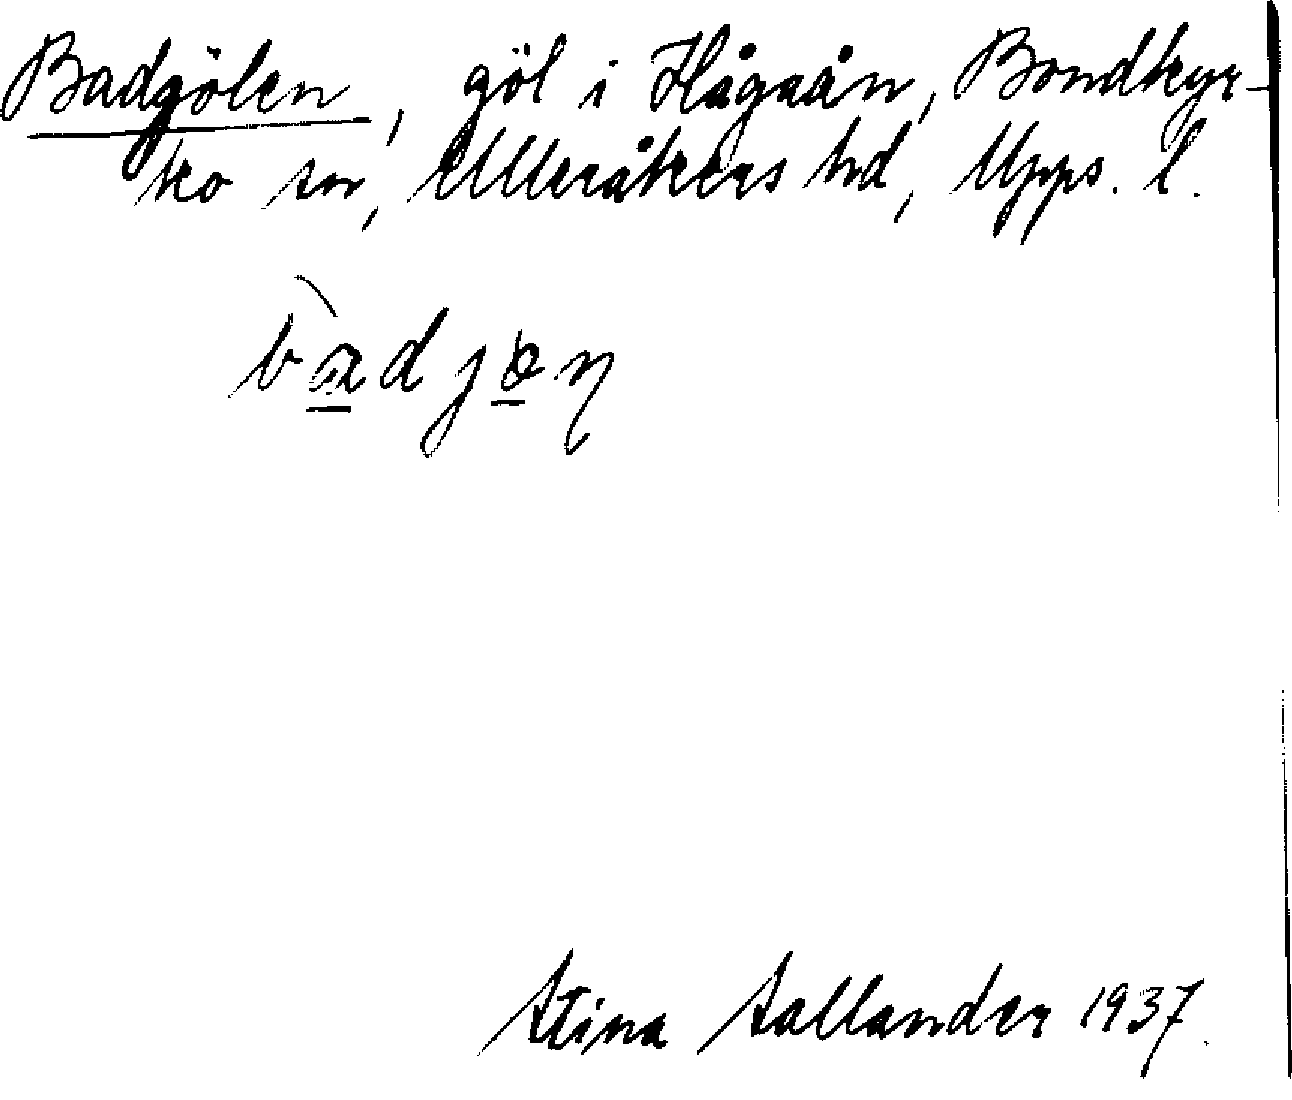 Badgölen, göl i Hågaån, Bondkyr-
ko sn, Ulleråkers hd, Upps. l.
Stina Sallander 1937.